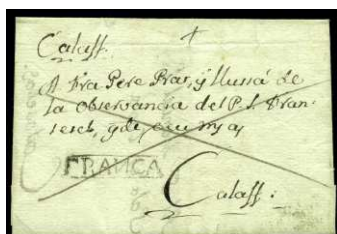 Calaff.
A Fra Pere Prat, y Llussá de
la Observancia del P. S. Fran-
sesch, gde
FRANCA
Calaff: